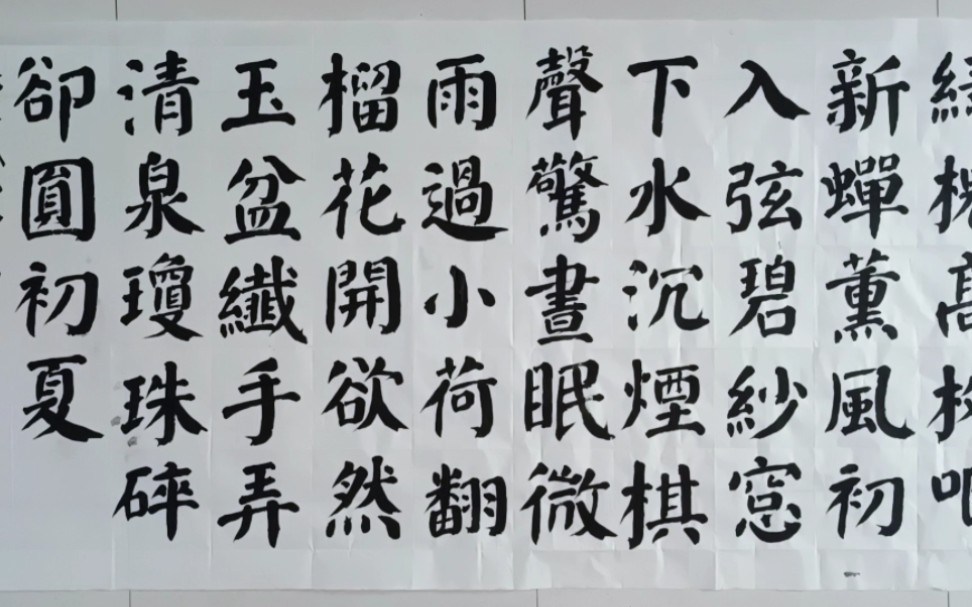 高
新蟬薰風初
入弦碧紗窓
下水沉煙棋
聲驚晝眠微
雨過小荷翻
榴花開欲然
玉盆纖手弄
清泉瓊珠碎
卻圓初夏